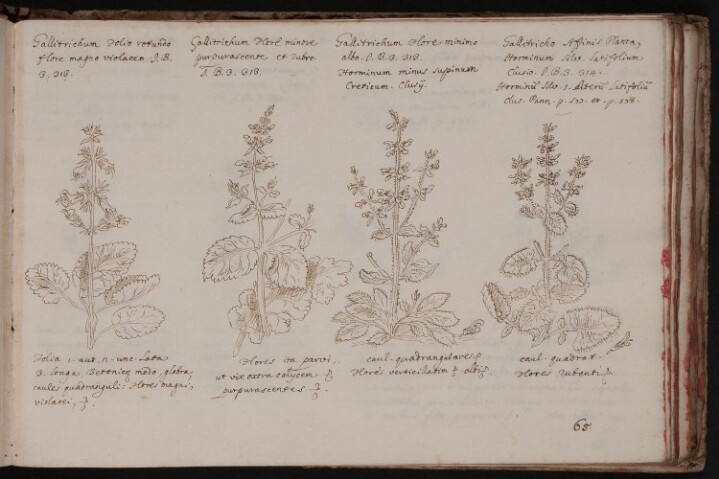 Gallitrichum Folio rotundo
flore magno violaceo J.B.
3. 313.
Gallitrichum Flore minore
purpurascente et rubro
J. B. 3. 313.
Gallitrichum Flore minimo
albo. J. B. 3. 313.
Horminum minus supinum
Creticum. Clusij.
Gallitricho Affinis Planta,
Horminum Silv. latifolium
Clusio. J. B. 3. 314.
Horminū Silv. 1. Alterū Latifoliū
Clus. Pann. p. et. p.
Folia 1. aut. 2. unc. Lata
3. longa, Betonicę modo, glabra,
caules quadranguli: Flores magni,
violacei,
Flores ita parvi,
ut vix extra calycem
purpurascentes.
caul. quadrangulares
Flores verticillatim albi
caul. quadrat.
Flores